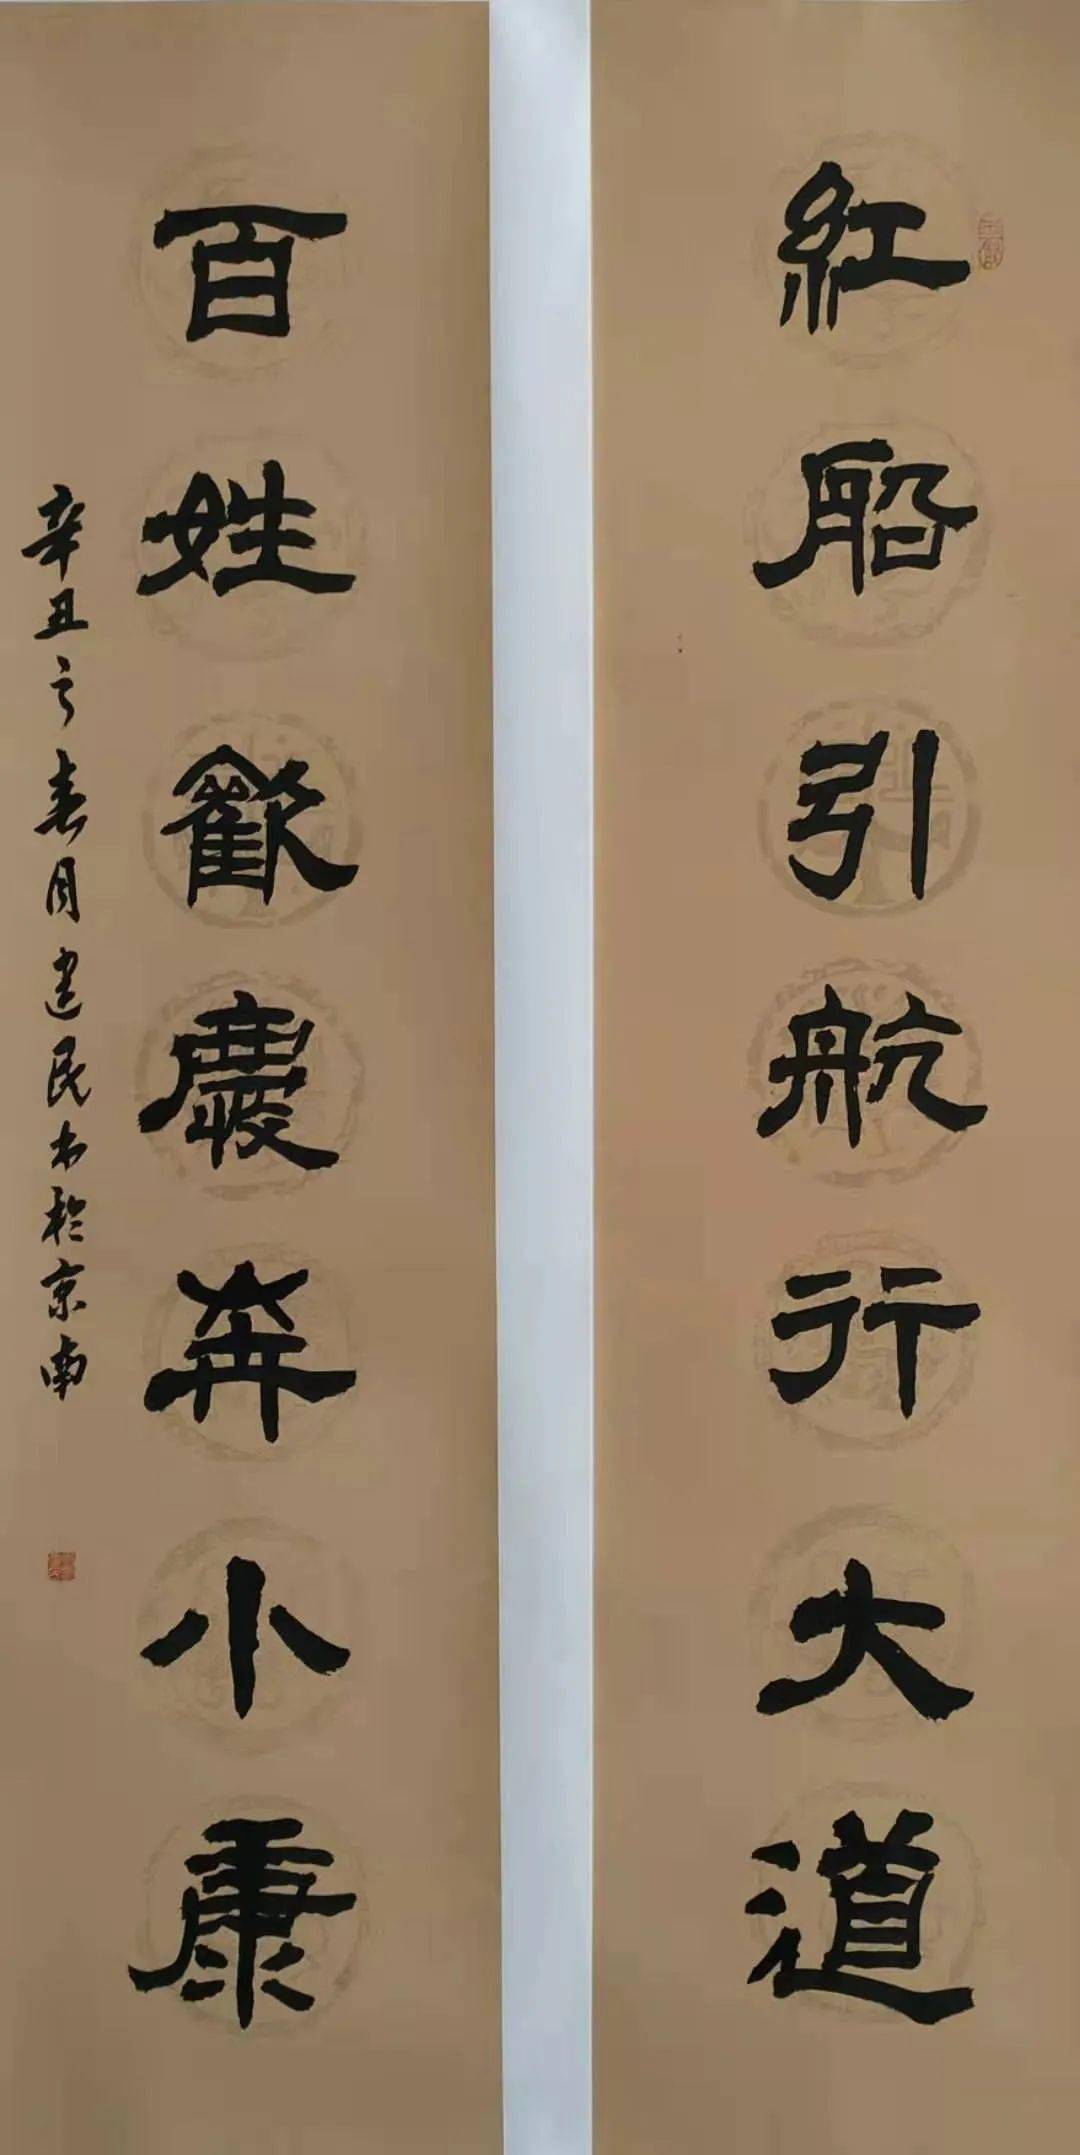 紅船引航行大道
百姓歡慶奔小康
辛丑之春月建民书於京南